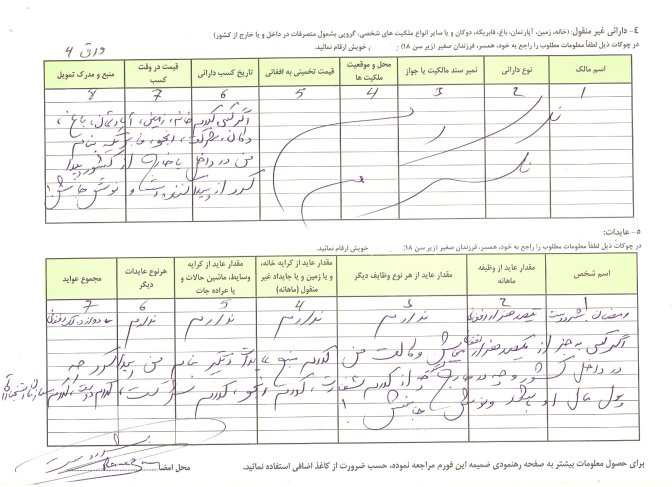 ورق ٤
٤- دارائی غیر منقول: (خانه، زمین، آپارتمان، باغ، فابریکه، دوکان و یا سایر انواع ملکیت های شخصی، گروپی بشمول متصرفات در داخل و یا خارج از کشور)
در چوکات ذیل لطفاً معلومات مطلوب را راجع به خود، همسر، فرزندان صغیر (زیر سن ١٨) خویش ارقام نمائید.
اسم مالک نوع دارائی نمبر سند مالکیت یا جواز محل و موقعیت ملکیت ها قیمت تخمینی به افغانی تاریخ کسب دارائی قیمت در وقت کسب منبع و مدرک تمویل
1 2 3 4 5 6 7 8
اگر کسی کدام خانه، زمین، آپارتمان، باغ،
دکان، شرکت، انجو، فابریکه بنام
من در داخل یا خارج از کشور پیدا
کرد از پیدا کننده است و نوش جانش!
ندارم
٥- عایدات:
در چوکات ذیل لطفاً معلومات مطلوب را راجع به خود، همسر، فرزندان صغیر (زیر سن ١٨) خویش ارقام نمائید.
اسم شخص مقدار عاید از وظیفه ماهانه مقدار عاید از هر نوع وظایف دیگر مقدار عاید از کرایه خانه، و یا زمین و یا جایداد غیر منقول (ماهانه) مقدار عاید از کرایه وسایط، ماشین حالات و یا عراده جات هر نوع عایدات دیگر مجموع عواید
1 2 3 4 5 6 7
رمضان بشردوست ندارم ندارم ندارم ندارم
اگر کسی به جز از یکصد هزار افغانی معاش وکالت من کدام منبع عایدات دیگر بنام من پیدا کرد چه
در داخل کشور و چه در خارج چه از کدام سفارت، کدام انجو، کدام شرکت، کدام دوست، کدام
پول مال او باشد و نوش جانش!
محل امضاء
برای حصول معلومات بیشتر به صفحه رهنمودی ضمیمه این فورم مراجعه نموده، حسب ضرورت از کاغذ اضافی استفاده نمائید.